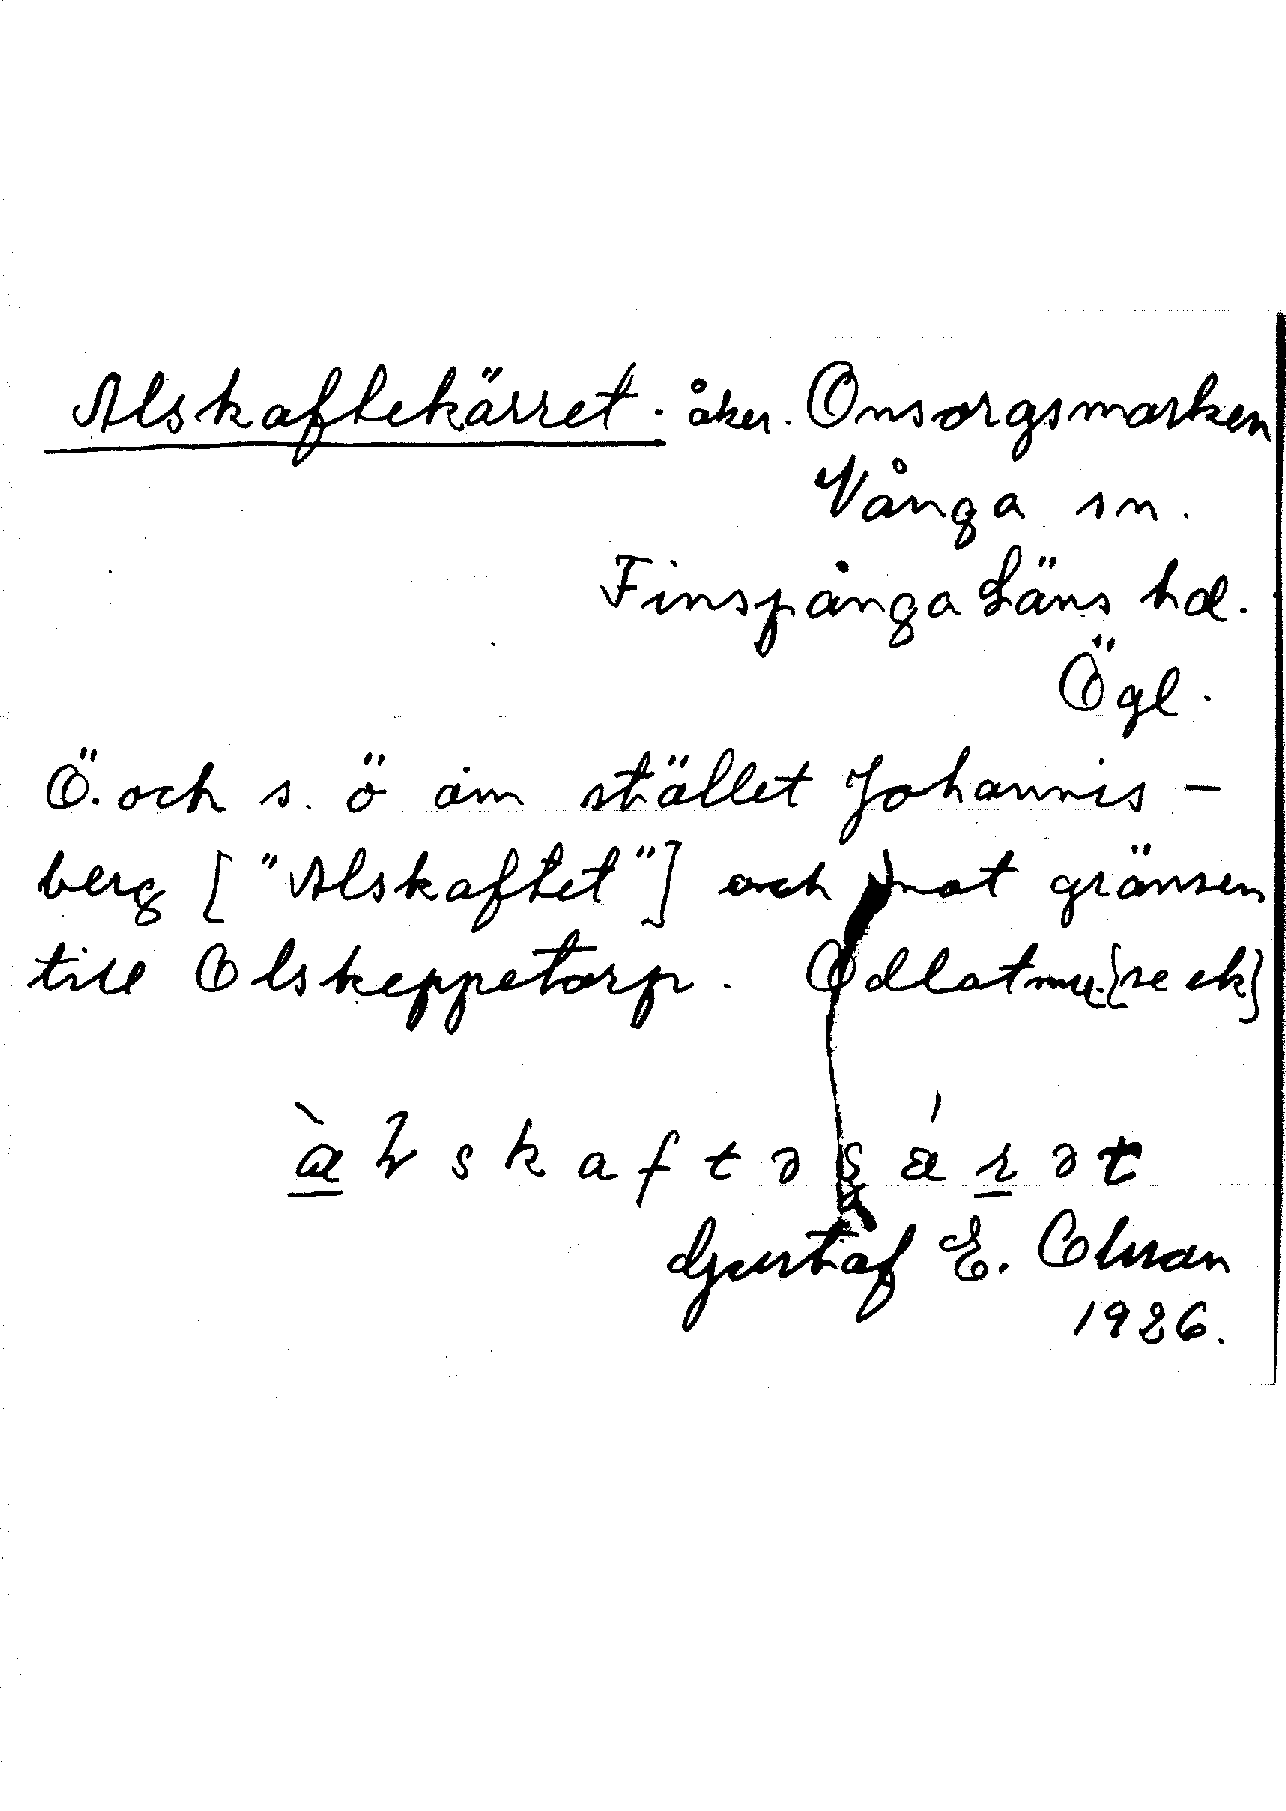 Alskaftekärret. åker. Onsorgsmarken
Vånga sn.
Finspånga Läns hd.
Ögl.
Ö. och s. ö om stället Johannis-
berg ["Alskaftet"] och mot gränsen
till Olskeppetorp. Odlat {se ek}
Gustaf E. Olsson
1926.